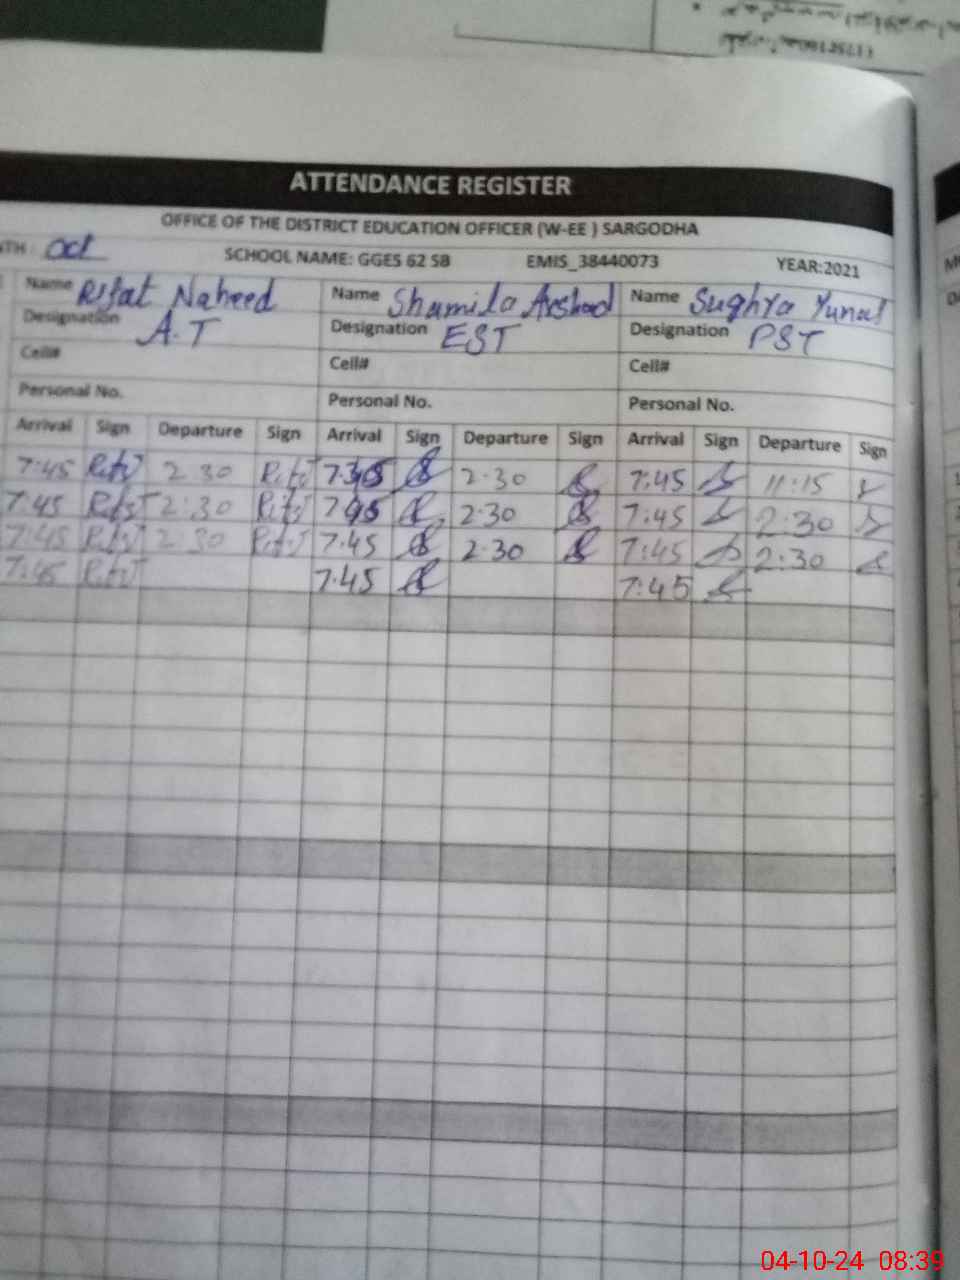 ATTENDANCE REGISTER
OFFICE OF THE DISTRICT EDUCATION OFFICER (W-EE ) SARGODHA
NTH : Oct SCHOOL NAME: GGES 62 SB EMIS_38440073 YEAR:2021
Name Rifat Naheed Name Shumila Arshad Name Sughra Yunas
Designation A.T Designation EST Designation PST
Cell# Cell# Cell#
Personal No. Personal No. Personal No.
Arrival Sign Departure Sign Arrival Sign Departure Sign Arrival Sign Departure Sign
7:45 2:30 2·30 7:45 11:15
7:45 2:30 2·30 7:45 2:30
7:45 2:30 7·45 2·30 7:45 2:30
7:45 7·45 7:45
04-10-24 08:39